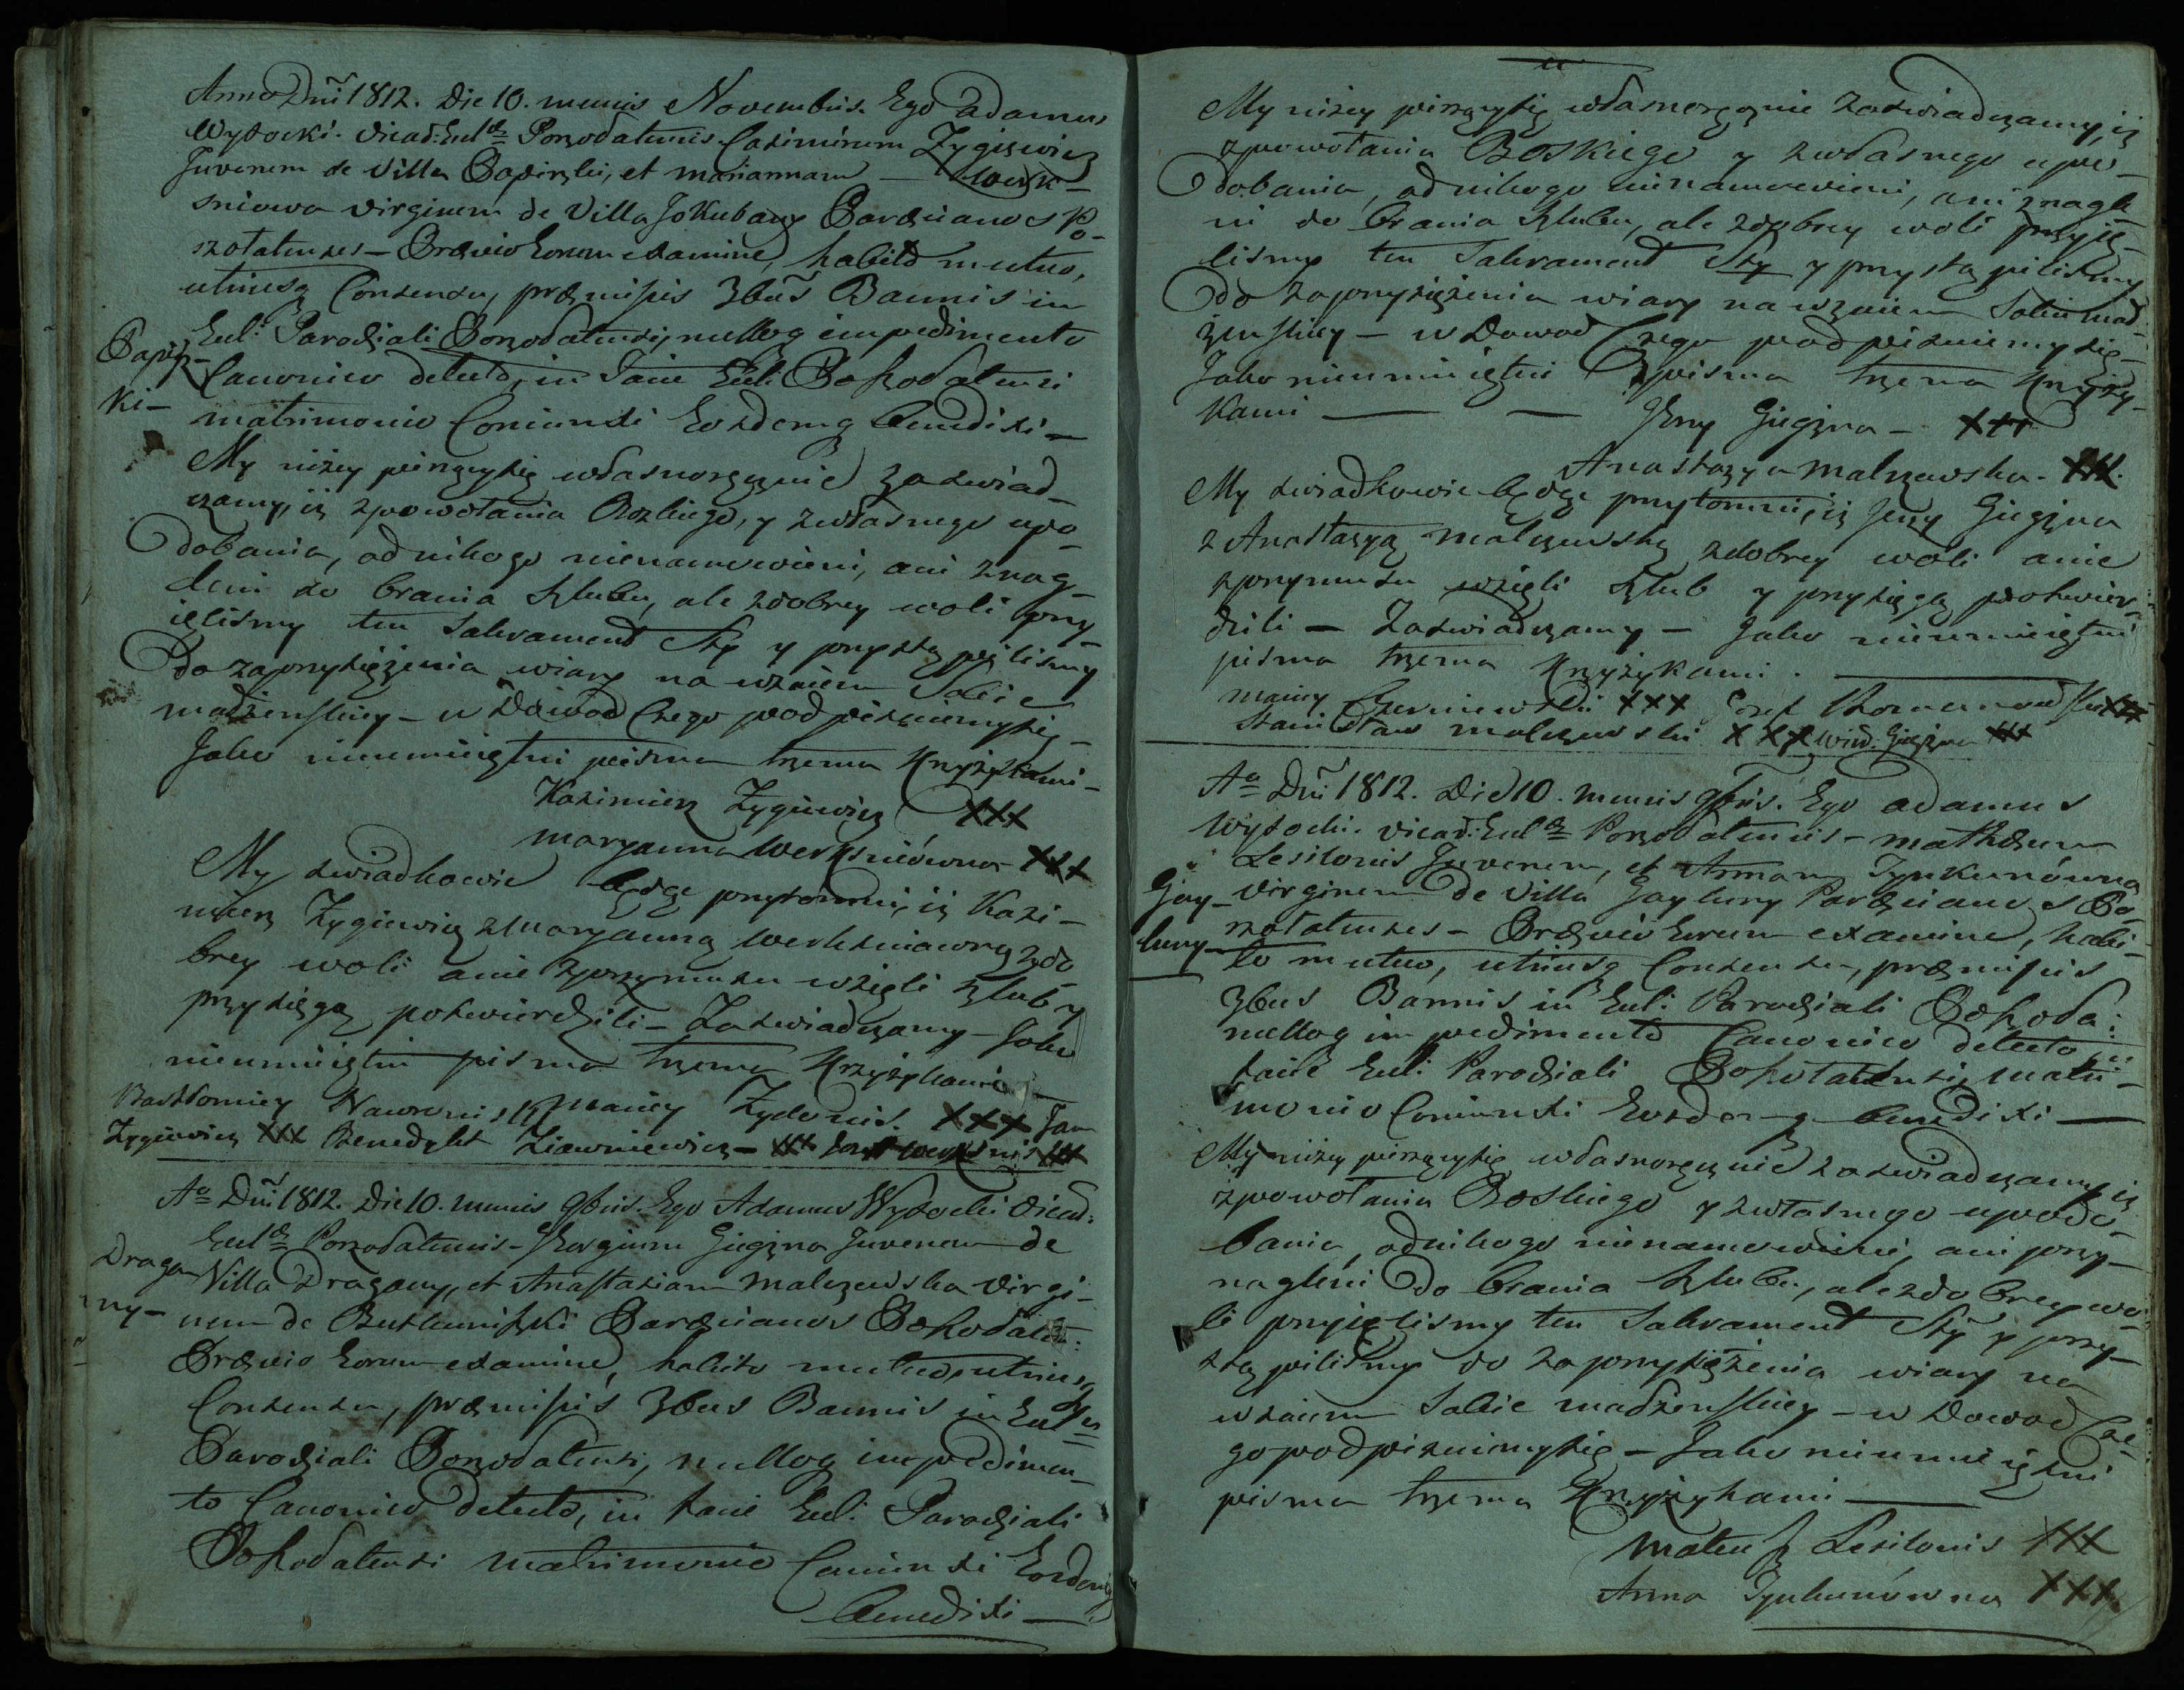 Anno Dni 1812. Die 10. mensis Novembris. Ego Adamus
Wysocki. Vicari: Eccl: Poszolatensis Casimirum Zygiewicz
Juvenem de Villa Papiszki, et Mariannam — Werk-
sniowa virginem de Villa Jokubany Parocianos Po-
szolatenses — Praevio Eorum examine, habito mutuo,
utriusq Consensu, praemissis 3bus Bannis in
Eccl: Parochiali Poszolatensi, nulloq impedimento
Papisz-
ki-
Canonico detecto, in Facie Eccl: Poszolatensi
matrimonio Coniunxi Eosdemq benedixi —
My niżey piszący się własnoręcznie zaswiad-
czamy, iż z powołania Bozkiego, y z własnego upo-
dobania, od nikogo nienamowieni, ani znag-
leni do brania Szlubu, ale z dobrey woli przy-
ięlismy ten Sakrament Sty y przystąpilismy
do zaprzysiężenia wiary na wzaiem Sobie
małżenskiey — w Dowod Czego podpisuiemy się
Jako nieumieiętni pisma trzema Krzyżykami —
Kazimierz Zygiewicz XXX
Maryanna Werksniówna XXX
My swiadkowie będąc przytomni, iż Kazi-
mierz Zygiewicz z Maryanną Werksniowną z do-
brey woli a nie z przymusu wzięli szlub y
przysięgą potwierdzili — Zaswiadczamy — Jako
nieumieiętni pisma trzema Krzyżykami
Bartłomiey Nawronis Maciey Zydonis. XXX Jan
Zygiewicz XXX Benedykt Ziawniewicz — XXX Werksnis XXX
Ao Dni 1812. Die 10. mensis 9bris. Ego Adamus Wysocki Vicari:
Eccl: Poszolatensis — Georgium Giegzna Juvenem de
Draga-
ny-
Villa Dragany, et Anastasiam Malczewska virgi-
nem de Butkuniszki Parocianos Poszolat:
Praevio Eorum examine, habito mutuo utriusq
Consensu, praemissis 3bus Bannis in Eccl:
Parochiali Poszolatensi, nulloq impedimen-
to Canonico detecto, in facie Eccl: Parochiali
Poszolatensi matrimonio Coniunxi Eosdemq
benedixi —
My niżey piszący się własnoręcznie zaswiadczamy, iż
z powołania Boskiego y z własnego upo-
dobania, od nikogo nienamowieni, ani znagle-
ni do brania Szlubu, ale z dobrey woli przyię-
lismy ten Sakrament Sty y przystąpilismy
do zaprzysiężenia wiary na wzaiem Sobie mał-
żenskiey — w Dowod Czego podpisuiemy się
Jako nieumieiętni pisma trzema Krzyży-
kami — — Jerzy Giegzna — XXX
Anastazya Malczewska. XXX.
My swiadkowie będąc przytomni, iż Jerzy Giegzna
z Anastazyą Malczewską z dobrey woli a nie
z przymusu wzięli szlub y przysięgą potwier-
dzili — Zaswiadczamy — Jako nieumieiętni
pisma trzema Krzyżykami. —
Maciey Czerniewski XXX Jozef XXX
Stanisław Malczewski XXX Winc. Giegzna XXX
Ao Dni 1812. Die 10. mensis 9bris. Ego Adamus
Wysocki. Vicari: Eccl: Poszolatensis — Mathaeum
Lesitonis Juvenem, et Annam Tynkunówna
Gay-
luny-
virginem de Villa Gayluny Parocianos Po-
szolatenses — Praevio Eorum examine, habi-
to mutuo, utriusq Consensu, praemissis
3bus Bannis in Eccl: Parochiali Poszola:
nulloq impedimento Canonico detecto, in
facie Eccl: Parochiali Poszolatensi, matri-
monio Coniunxi Eosdemq benedixi —
My niżey piszący się własnoręcznie zaswiadczamy iż
z powołania Boskiego y z własnego upodo-
bania, od nikogo nienamowieni, ani przy-
nagleni do brania Szlubu, ale z dobrey wo-
li przyięlismy ten Sakrament Sty y przy-
stąpilismy do zaprzysiężenia wiary na
wzaiem Sobie małżenskiey — w Dowod Cze-
go podpisuiemy się — Jako nieumieiętni
pisma trzema Krzyżykami —
Mateusz Lesitonis XXX
Anna Tynkunówna XXX.